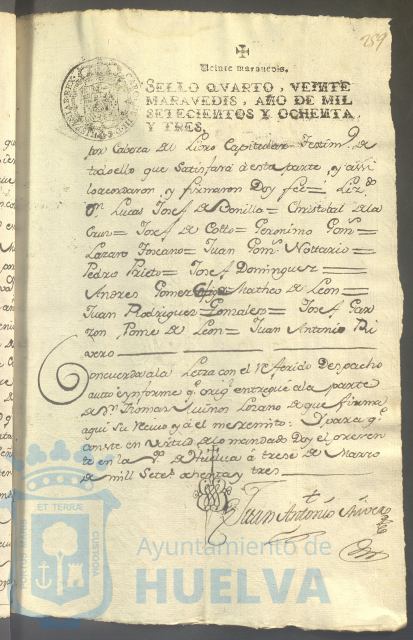 259
Veinte maravedis.
SELLO QVARTO, VEINTE
MARAVEDIS, AÑO DE MIL
SETECIENTOS Y OCHENTA
Y TRES.
por Caveza del Libro Capitular Testim.º de
todo ello que Satisfará esta parte, y assi
lo acordaron, y firmaron Doy feè = Liz.do
Dn. Lucas Josef de Bonilla = Christobal de la
Cruz = Josef de Cotto = Geronimo Gomz.
Lazaro Toscano = Juan Gomz. Nottario =
Pedro Prieto = Josef Dominguez =
Andres Gomez = Matheo de Leon =
Juan Rodriguez Gonzales = Josef Gar
zon Ponze de Leon = Juan Antonio Ri
vero
Concuerda a la Letra con el referido Despacho
auto è ynforme q.e orig.l entreguè a la parte
de Dn. Thomas Muñoz Lozano de que firma
aqui su Recivo y à el me remito: Y para q.e
conste en virtud de lo mandado Doy el presen
te en la V.a de Huelva à trese de Marzo
de mil Setez.s ochenta y tres
Juan Antonio Rivero
ET TERRÆ
PORTUS MARIS
CUSTODIA
Ayuntamiento de
HUELVA